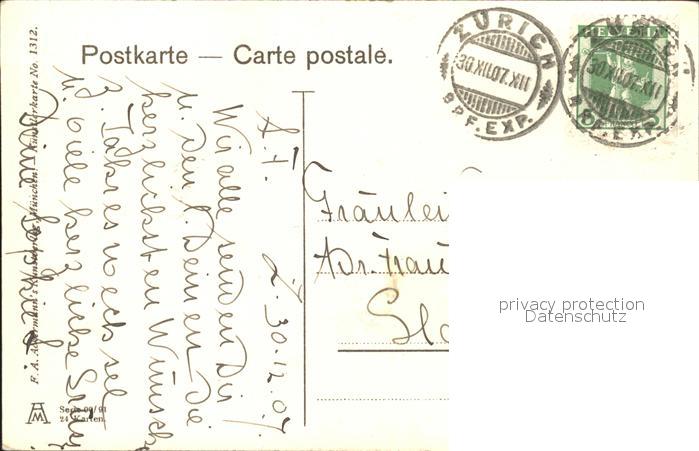 Postkarte — Carte postale.
ZÜRICH
30.XII.07.XI
BRF. EXP.
HELVETIA
F. A. Ackermann's Kunstverlag, München. Künstlerkarte No. 1312.
Serie 99/91
24 Karten.
Z. 30.12.07.
Wir alle senden Dir
u. den l. Deinen die
herzlichsten Wünsche
z. Jahreswechsel
u. viele herzliche Grüße
Deine Sophie
Fräulei
Adr. Frau
Gla
privacy protection
Datenschutz